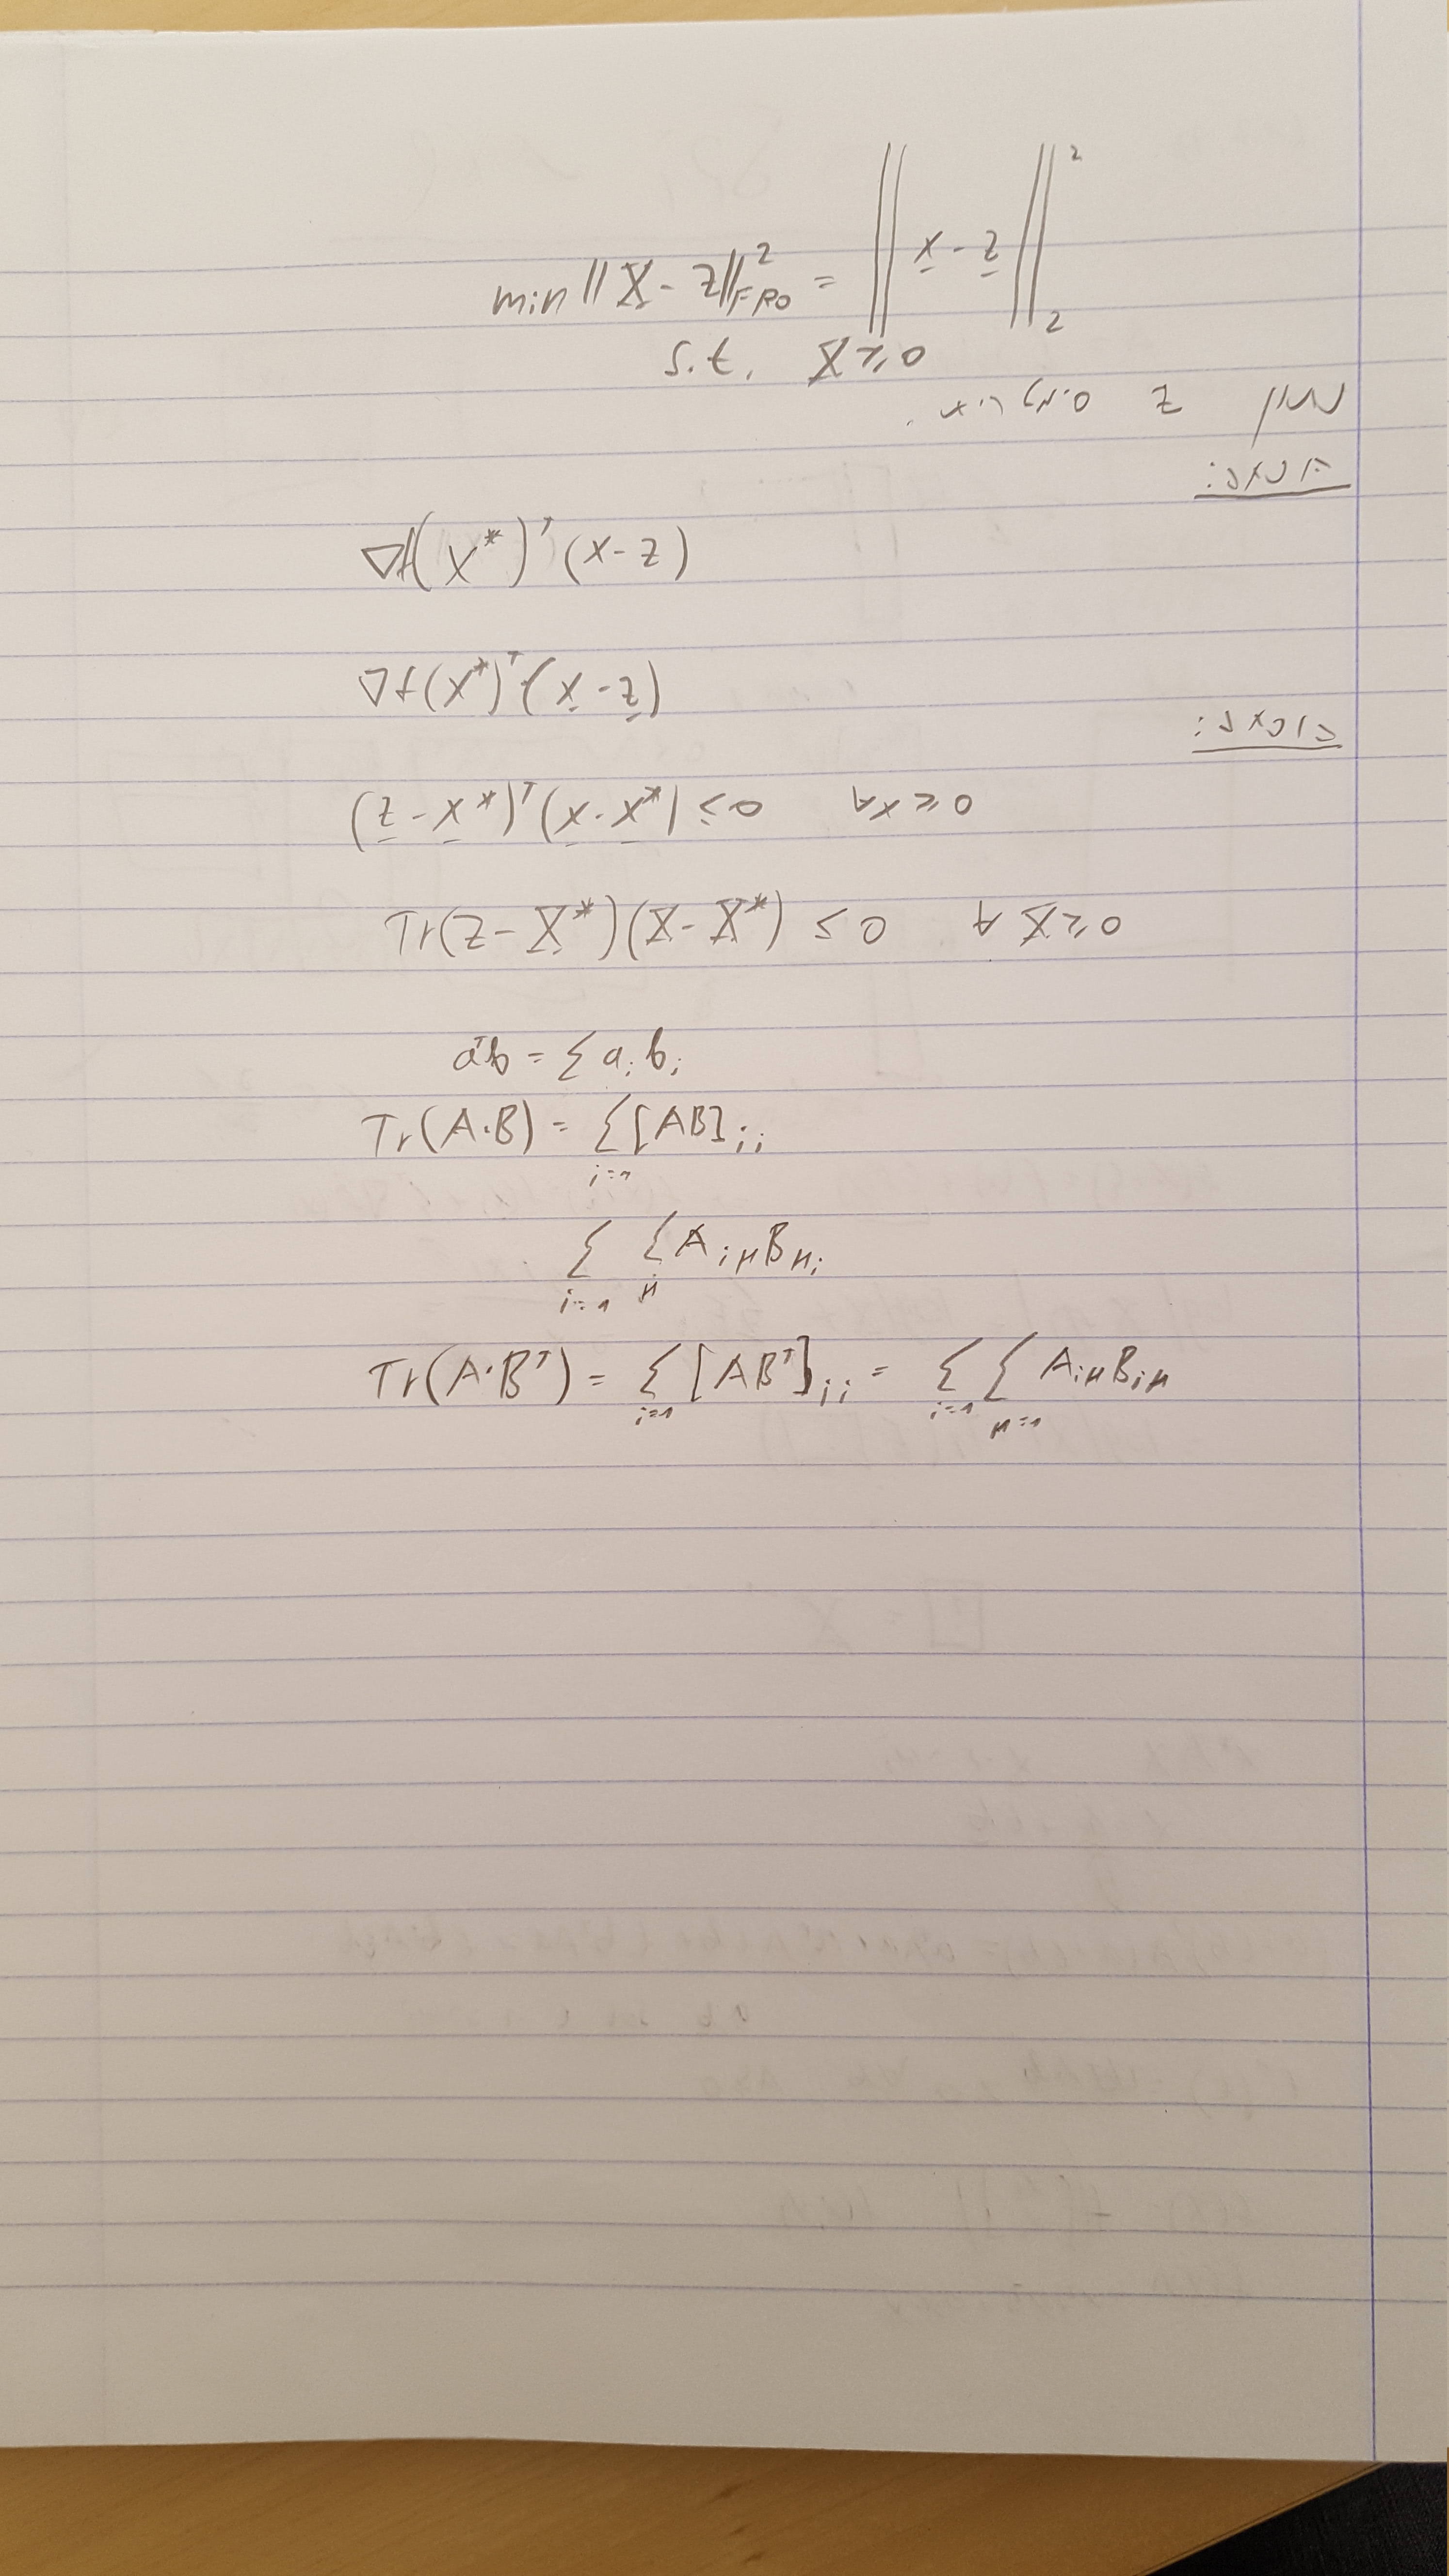 min ||X - Z||²_FRO = ||x - z||²_2
s.t. X ≽ 0
Z
∇f(x*)ᵀ(x-z)
∇f(x*)ᵀ(x-z)
(z-x*)ᵀ(x-x*) ≤ 0 ∀x ≽ 0
Tr(Z-X*)(X-X*) ≤ 0 ∀ X ≽ 0
aᵀb = Σ aᵢ bᵢ
Tr(A·B) = Σ_{i=1} [AB]ᵢᵢ
Σ_{i=1} Σ_k A_{ik} B_{ki}
Tr(A·Bᵀ) = Σ_{i=1} [ABᵀ]ᵢᵢ = Σ_{i=1} Σ_{k=1} A_{ik} B_{ik}